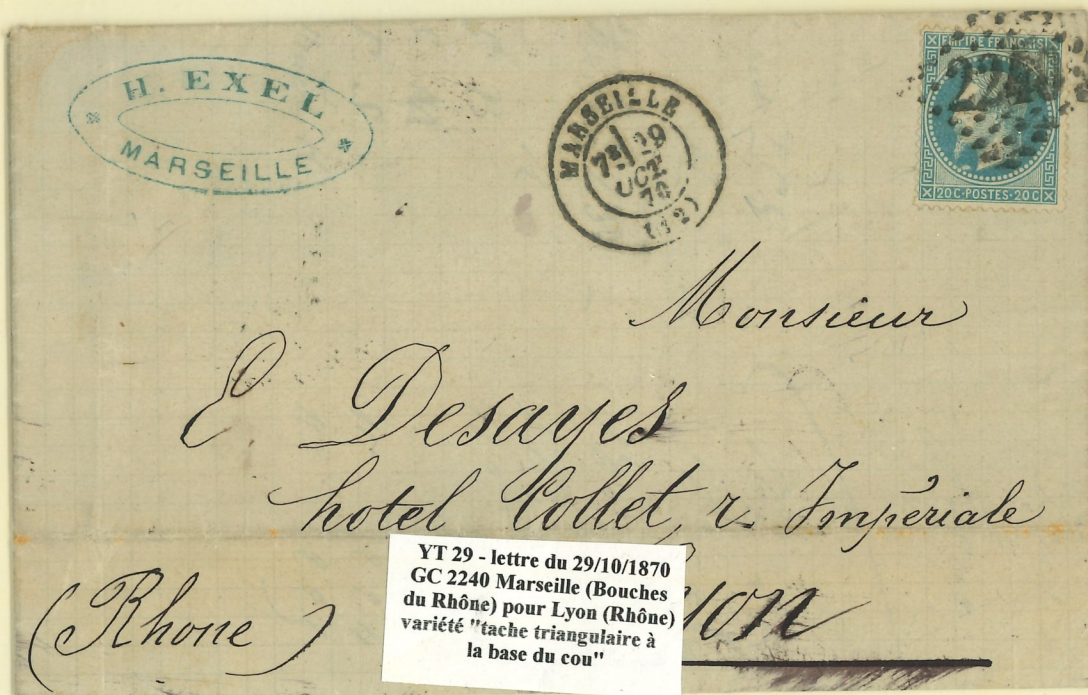 H. EXEL
MARSEILLE
MARSEILLE
29
OCT
70
(12)
2240
EMPIRE FRANÇAIS
20C·POSTES·20C
Monsieur
E Desayes
hotel Collet, r. Impériale
(Rhone)
YT 29 - lettre du 29/10/1870
GC 2240 Marseille (Bouches
du Rhône) pour Lyon (Rhône)
variété "tache triangulaire à
la base du cou"